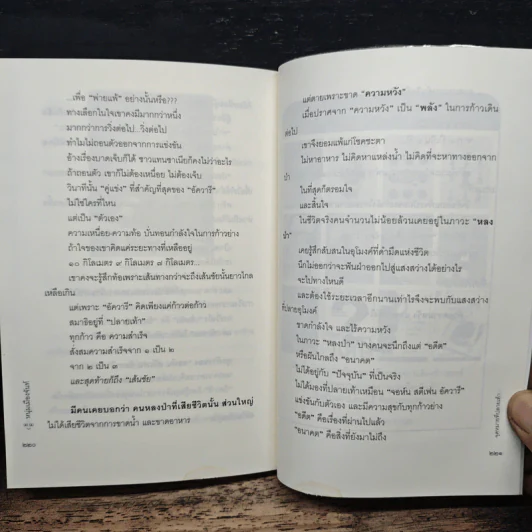 ...เพื่อ “พ่ายแพ้” อย่างนั้นหรือ???
ทางเลือกในใจเขาคงมีมากกว่าหนึ่ง
มากกว่าการวิ่งต่อไป...วิ่งต่อไป
ทำไมไม่ถอนตัวออกจากการแข่งขัน
อ้างเรื่องบาดเจ็บก็ได้ ชาวแทนซาเนียก็คงไม่ว่าอะไร
ถ้าถอนตัว เขาก็ไม่ต้องเหนื่อย ไม่ต้องเจ็บ
วินาทีนั้น “คู่แข่ง” ที่สำคัญที่สุดของ “อัควารี”
ไม่ใช่ใครที่ไหน
แต่เป็น “ตัวเอง”
ความเหนื่อย-ความท้อ บั่นทอนกำลังใจในการก้าวย่าง
ถ้าใจของเขาคิดแต่ระยะทางที่เหลืออยู่
๑๐ กิโลเมตร ๙ กิโลเมตร ๘ กิโลเมตร...
เขาคงจะรู้สึกท้อเพราะเส้นทางกว่าจะถึงเส้นชัยนั้นยาวไกล
เหลือเกิน
แต่เพราะ “อัควารี” คิดเพียงแค่ก้าวต่อก้าว
สมาธิอยู่ที่ “ปลายเท้า”
ทุกก้าว คือ ความสำเร็จ
สั่งสมความสำเร็จจาก ๑ เป็น ๒
จาก ๒ เป็น ๓
และสุดท้ายก็ถึง “เส้นชัย”
มีคนเคยบอกว่า คนหลงป่าที่เสียชีวิตนั้น ส่วนใหญ่
ไม่ได้เสียชีวิตจากการขาดน้ำ และขาดอาหาร
๒๒๐
แต่ตายเพราะขาด “ความหวัง”
เมื่อปราศจาก “ความหวัง” เป็น “พลัง” ในการก้าวเดิน
ต่อไป
เขาจึงยอมแพ้แก่โชคชะตา
ไม่หาอาหาร ไม่คิดหาแหล่งน้ำ ไม่คิดที่จะหาทางออกจาก
ป่า
ในที่สุดก็ตรอมใจ
และสิ้นใจ
ในชีวิตจริงคนจำนวนไม่น้อยล้วนเคยอยู่ในภาวะ “หลง
ป่า”
เคยรู้สึกสับสนในอุโมงค์ที่ดำมืดแห่งชีวิต
นึกไม่ออกว่าจะพ้นผ่าออกไปสู่แสงสว่างได้อย่างไร
จะไปทางไหนดี
และต้องใช้ระยะเวลาอีกนานเท่าไรจึงจะพบกับแสงสว่าง
ที่ปลายอุโมงค์
ขาดกำลังใจ และไร้ความหวัง
ในภาวะ “หลงป่า” บางคนจะนึกถึงแต่ “อดีต”
หรือฝันไกลถึง “อนาคต”
ไม่ได้อยู่กับ “ปัจจุบัน” ที่เป็นจริง
ไม่ได้มองที่ปลายเท้าเหมือน “จอห์น สตีเฟน อัควารี”
แข่งขันกับตัวเอง และมีความสุขกับทุกก้าวย่าง
“อดีต” คือเรื่องที่ผ่านไปแล้ว
“อนาคต” คือสิ่งที่ยังมาไม่ถึง
๒๒๑